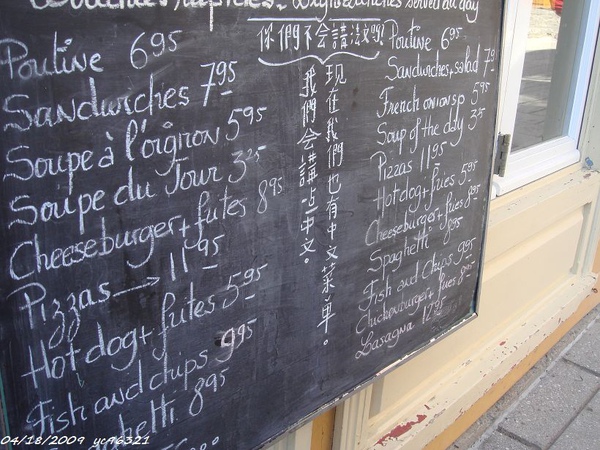 rapides - Light lunches served all day
Poutine 6 95
Sandwiches 7 95
Soupe à l'oignon 5 95
Soupe du Jour 3 25
Cheeseburger + frites 8 95
Pizzas → 11 95
Hot dog + frites 5 95
Fish and chips 9 95
Spaghetti 8 95
你們不会講法文嗎?
現在我們也有中文菜單。
我們会講点中文。
Poutine 6 95
Sandwiches, salad 7 9
French onion sp 5 95
Soup of the day 3 25
Pizzas 11 95
Hot dog + fries 5 95
Cheeseburger + fries 8 95
Spaghetti 8 95
Fish and Chips 9 95
Chickenburger + fries 8 95
Lasagna 12 95
04/18/2009 yc96321